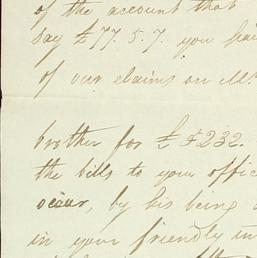 of the account that
say £77.5.7. you hav
of our claims on Mr
brother for £ 232.
the bills to your offic
occur, by his being
in your friendly in